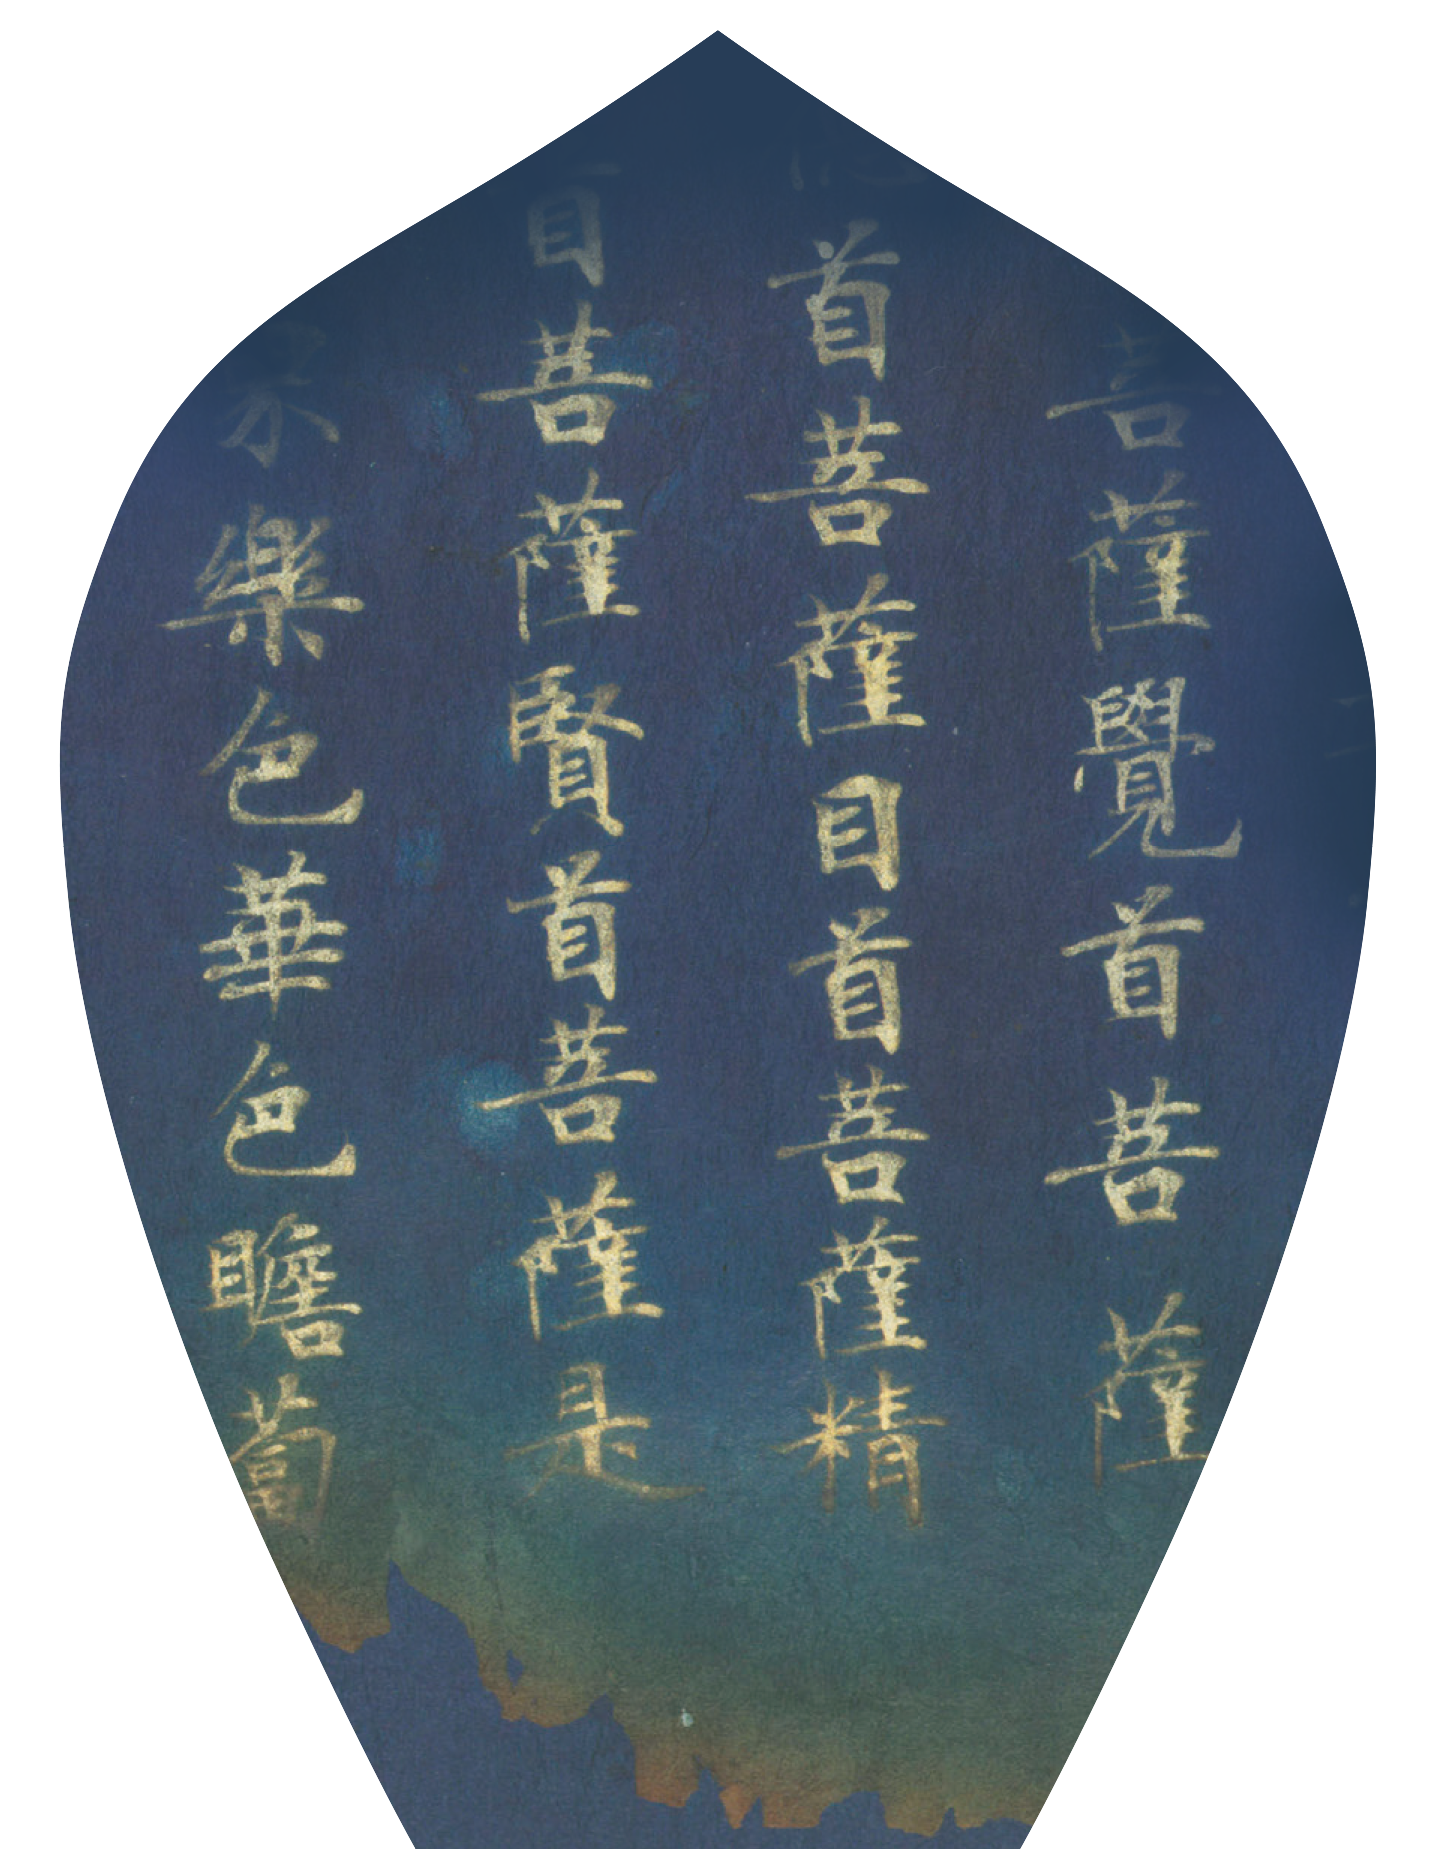 菩薩覺首菩薩
首菩薩目首菩薩精
首菩薩賢首菩薩是
樂色華色瞻蔔